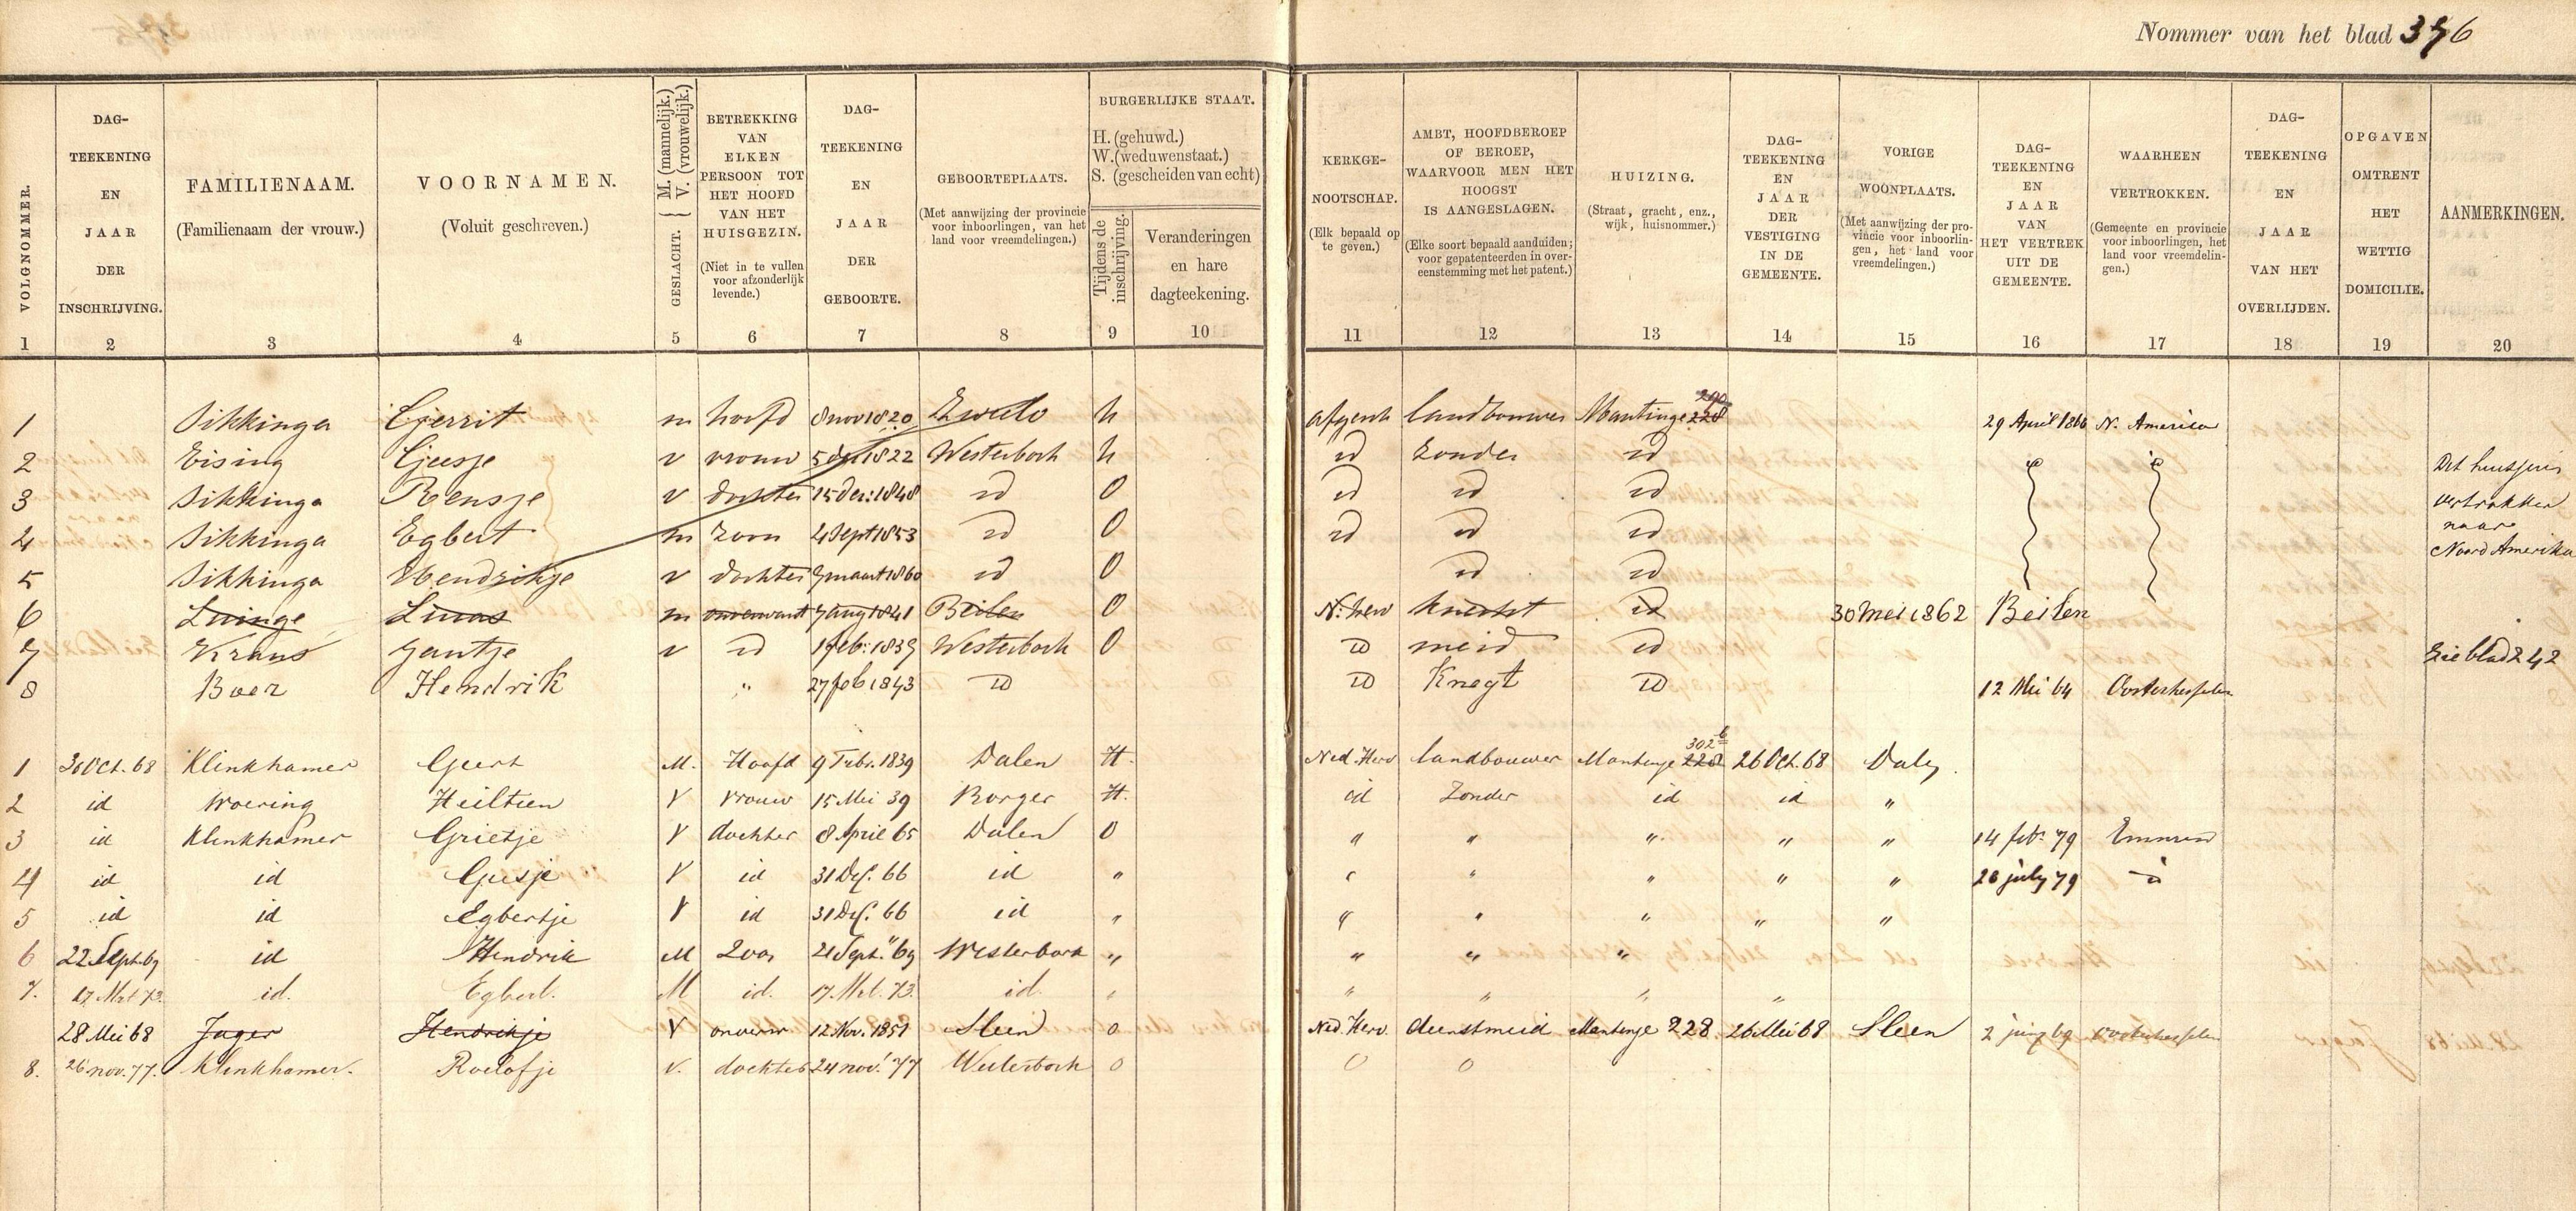 Nommer van het blad 376
VOLGNOMMER. 1
DAG-TEEKENING EN JAAR DER INSCHRIJVING. 2
FAMILIENAAM. (Familienaam der vrouw.) 3
VOORNAMEN. (Voluit geschreven.) 4
GESLACHT. { M. (mannelijk.) V. (vrouwelijk.) 5
BETREKKING VAN ELKEN PERSOON TOT HET HOOFD VAN HET HUISGEZIN. (Niet in te vullen voor afzonderlijk levende.) 6
DAG-TEEKENING EN JAAR DER GEBOORTE. 7
GEBOORTEPLAATS. (Met aanwijzing der provincie voor inboorlingen, van het land voor vreemdelingen.) 8
BURGERLIJKE STAAT. H. (gehuwd.) W. (weduwenstaat.) S. (gescheiden van echt)
Tijdens de inschrijving. 9
Veranderingen en hare dagteekening. 10
KERKGE-NOOTSCHAP. (Elk bepaald op te geven.) 11
AMBT, HOOFDBEROEP OF BEROEP, WAARVOOR MEN HET HOOGST IS AANGESLAGEN. (Elke soort bepaald aanduiden; voor gepatenteerden in over-eenstemming met het patent.) 12
HUIZING. (Straat, gracht, enz., wijk, huisnommer.) 13
DAG-TEEKENING EN JAAR DER VESTIGING IN DE GEMEENTE. 14
VORIGE WOONPLAATS. (Met aanwijzing der pro-vincie voor inboorlin-gen, het land voor vreemdelingen.) 15
DAG-TEEKENING EN JAAR VAN HET VERTREK UIT DE GEMEENTE. 16
WAARHEEN VERTROKKEN. (Gemeente en provincie voor inboorlingen, het land voor vreemdelin-gen.) 17
DAG-TEEKENING EN JAAR VAN HET OVERLIJDEN. 18
OPGAVEN OMTRENT HET WETTIG DOMICILIE. 19
AANMERKINGEN. 20
1 Sikkinga Gerrit m hoofd 8 nov 1820 Zweelo h afgesch landbouwer Mantinge 228 29 April 1866 N. Amerika
2 Eising Geesje v vrouw 1822 Westerbork h id zonder id Dit huisgezin
3 Sikkinga Rensje v dochter 15 Dec: 1848 id O id id id vertrokken
4 Sikkinga Egbert m zoon 4 Sept 1853 id O id id id naar Noord Amerika
5 Sikkinga Hendrikje v dochter 7 maart 1860 id O id id
6 Luinge Lucas m onverwant 7 aug 1841 Beilen O N: herv knecht id 30 Mei 1862 Beilen
7 Krans Jantje v id 1 feb: 1839 Westerbork O id meid id Zie blad 242
8 Boer Hendrik " 27 feb 1843 id id Knegt id 12 Mei 64 Oosterhesselen
1 30 Oct. 68 Klinkhamer Geert M. Hoofd 9 Febr. 1839 Dalen H. Ned. Herv landbouwer Mantinge 302 b 228 26 Oct. 68 Dalen
2 id Woering Heiltien V vrouw 15 Mei 39 Borger H. id Zonder id id "
3 id Klinkhamer Grietje V dochter 8 April 65 Dalen O " " " " " 14 feb. 79 Emmen
4 id id Geesje V id 31 Dec. 66 id " " " " " " 28 july 79
5 id id Egbertje V id 31 Dec. 66 id " " " " " "
6 22 Sept. 69 id Hendrik M Zoon 21 Sept. 69 Westerbork " " " "
7. 17 Mrt 73. id. Egbert. M id. 17. Mrt. 73. id. " " " " "
28 Mei 68 Jager Hendrikje V onverw 12 Nov. 1851 Sleen O Ned. Herv. dienstmeid Mantinge 228 26 Mei 68 Sleen 2 juny 69 Oosterhesselen
8. 26 nov. 77. Klinkhamer. Roelofje V. dochter 24 nov. 77 Westerbork O O O